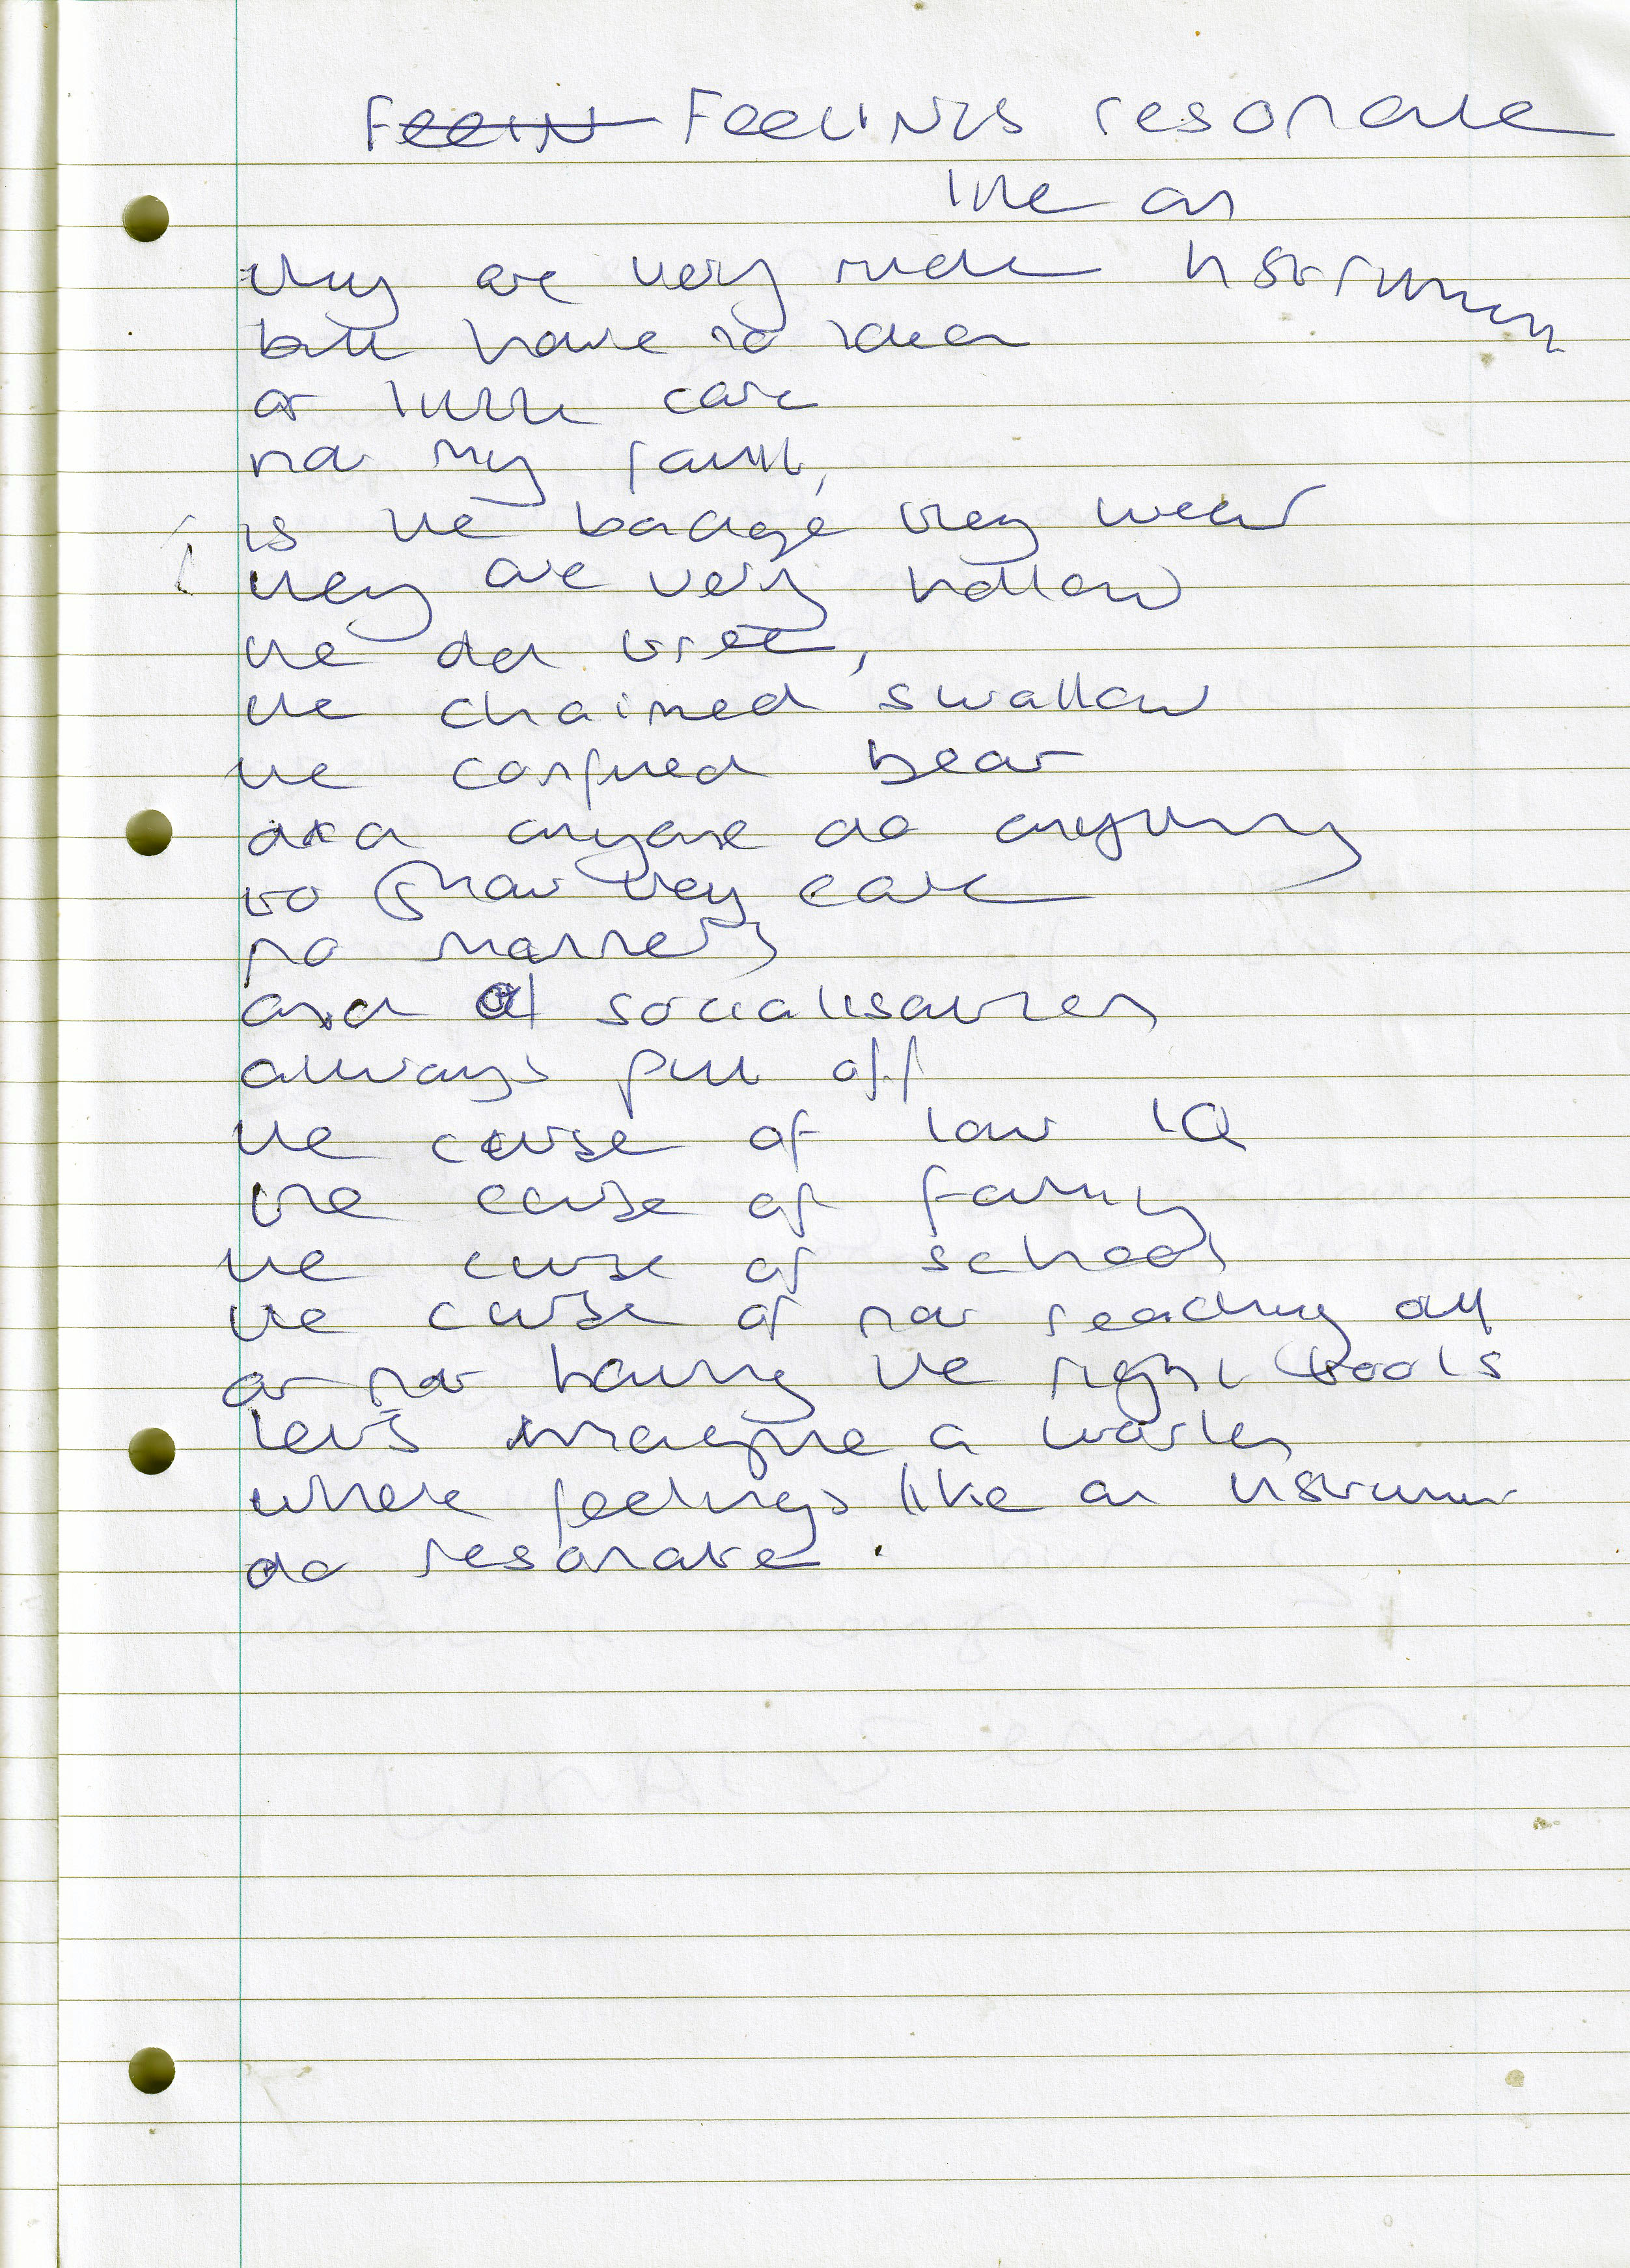 Feelin Feelings resonate
like an
instrument
they are very rude
but have no idea
or little care
not my fault,
is the badge they wear
they are very hollow
the dead tree,
the chained swallow
the confined bear
did anyone do anything
to show they care
no manners
and of socialisation
always put off
the curse of low IQ
the curse of family
the curse of school
the curse of not reading all
or not having the right tools
let's imagine a world
where feelings like an instrument
do resonate.